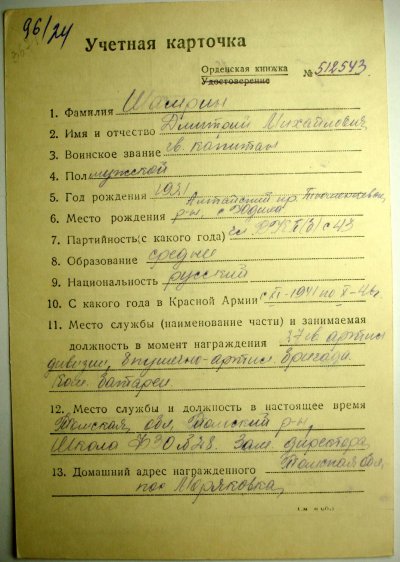 96/24
Учетная карточка
Орденская книжка
Удостоверение № 512543
1. Фамилия Шамрин
2. Имя и отчество Дмитрий Михайлович
3. Воинское звание гв. капитан
4. Пол мужской
5. Год рождения 1921
Алтайский кр.
6. Место рождения р-н, с
7. Партийность (с какого года) чл ВКП(б) с 43
8. Образование среднее
9. Национальность русский
10. С какого года в Красной Армии с XI-1941 по X-46г
11. Место службы (наименование части) и занимаемая
должность в момент награждения 37 гв артил
дивизии, пушечно-артил. бригада
Ком. батареи.
12. Место службы и должность в настоящее время
Томская обл. Томский р-н,
Школа ФЗО №28. Зам. директора
13. Домашний адрес награжденного Томская обл,
пос Моряковка,